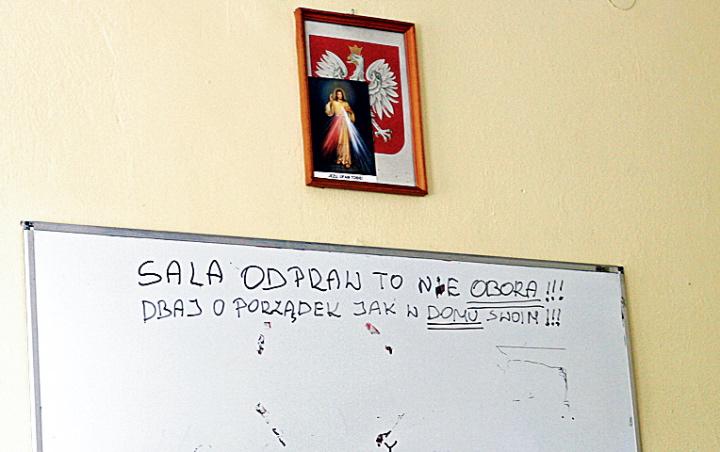 JEZU, UFAM TOBIE!
SALA ODPRAW TO NIE OBORA!!!
DBAJ O PORZĄDEK JAK W DOMU SWOIM!!!